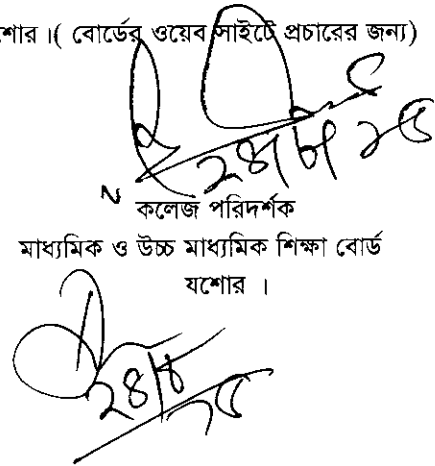 শোর ।( বোর্ডের ওয়েব সাইটে প্রচারের জন্য)
কলেজ পরিদর্শক
মাধ্যমিক ও উচ্চ মাধ্যমিক শিক্ষা বোর্ড
যশোর ।
২৪/৮